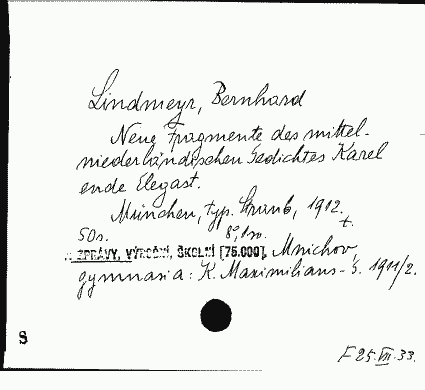 Lindmeyr, Bernhard
Neue Fragmente des mittel-
niederländischen Gedichtes Karel
ende Elegast.
München, typ. Straub, 1912.
50 s. 8°, 1 sv. +
ZPRÁVY, VÝROČNÍ, ŠKOLNÍ [75.000], Mnichov,
gymnasia: K. Maximilians- š. 1911/2.
8
F 25.VII.33.